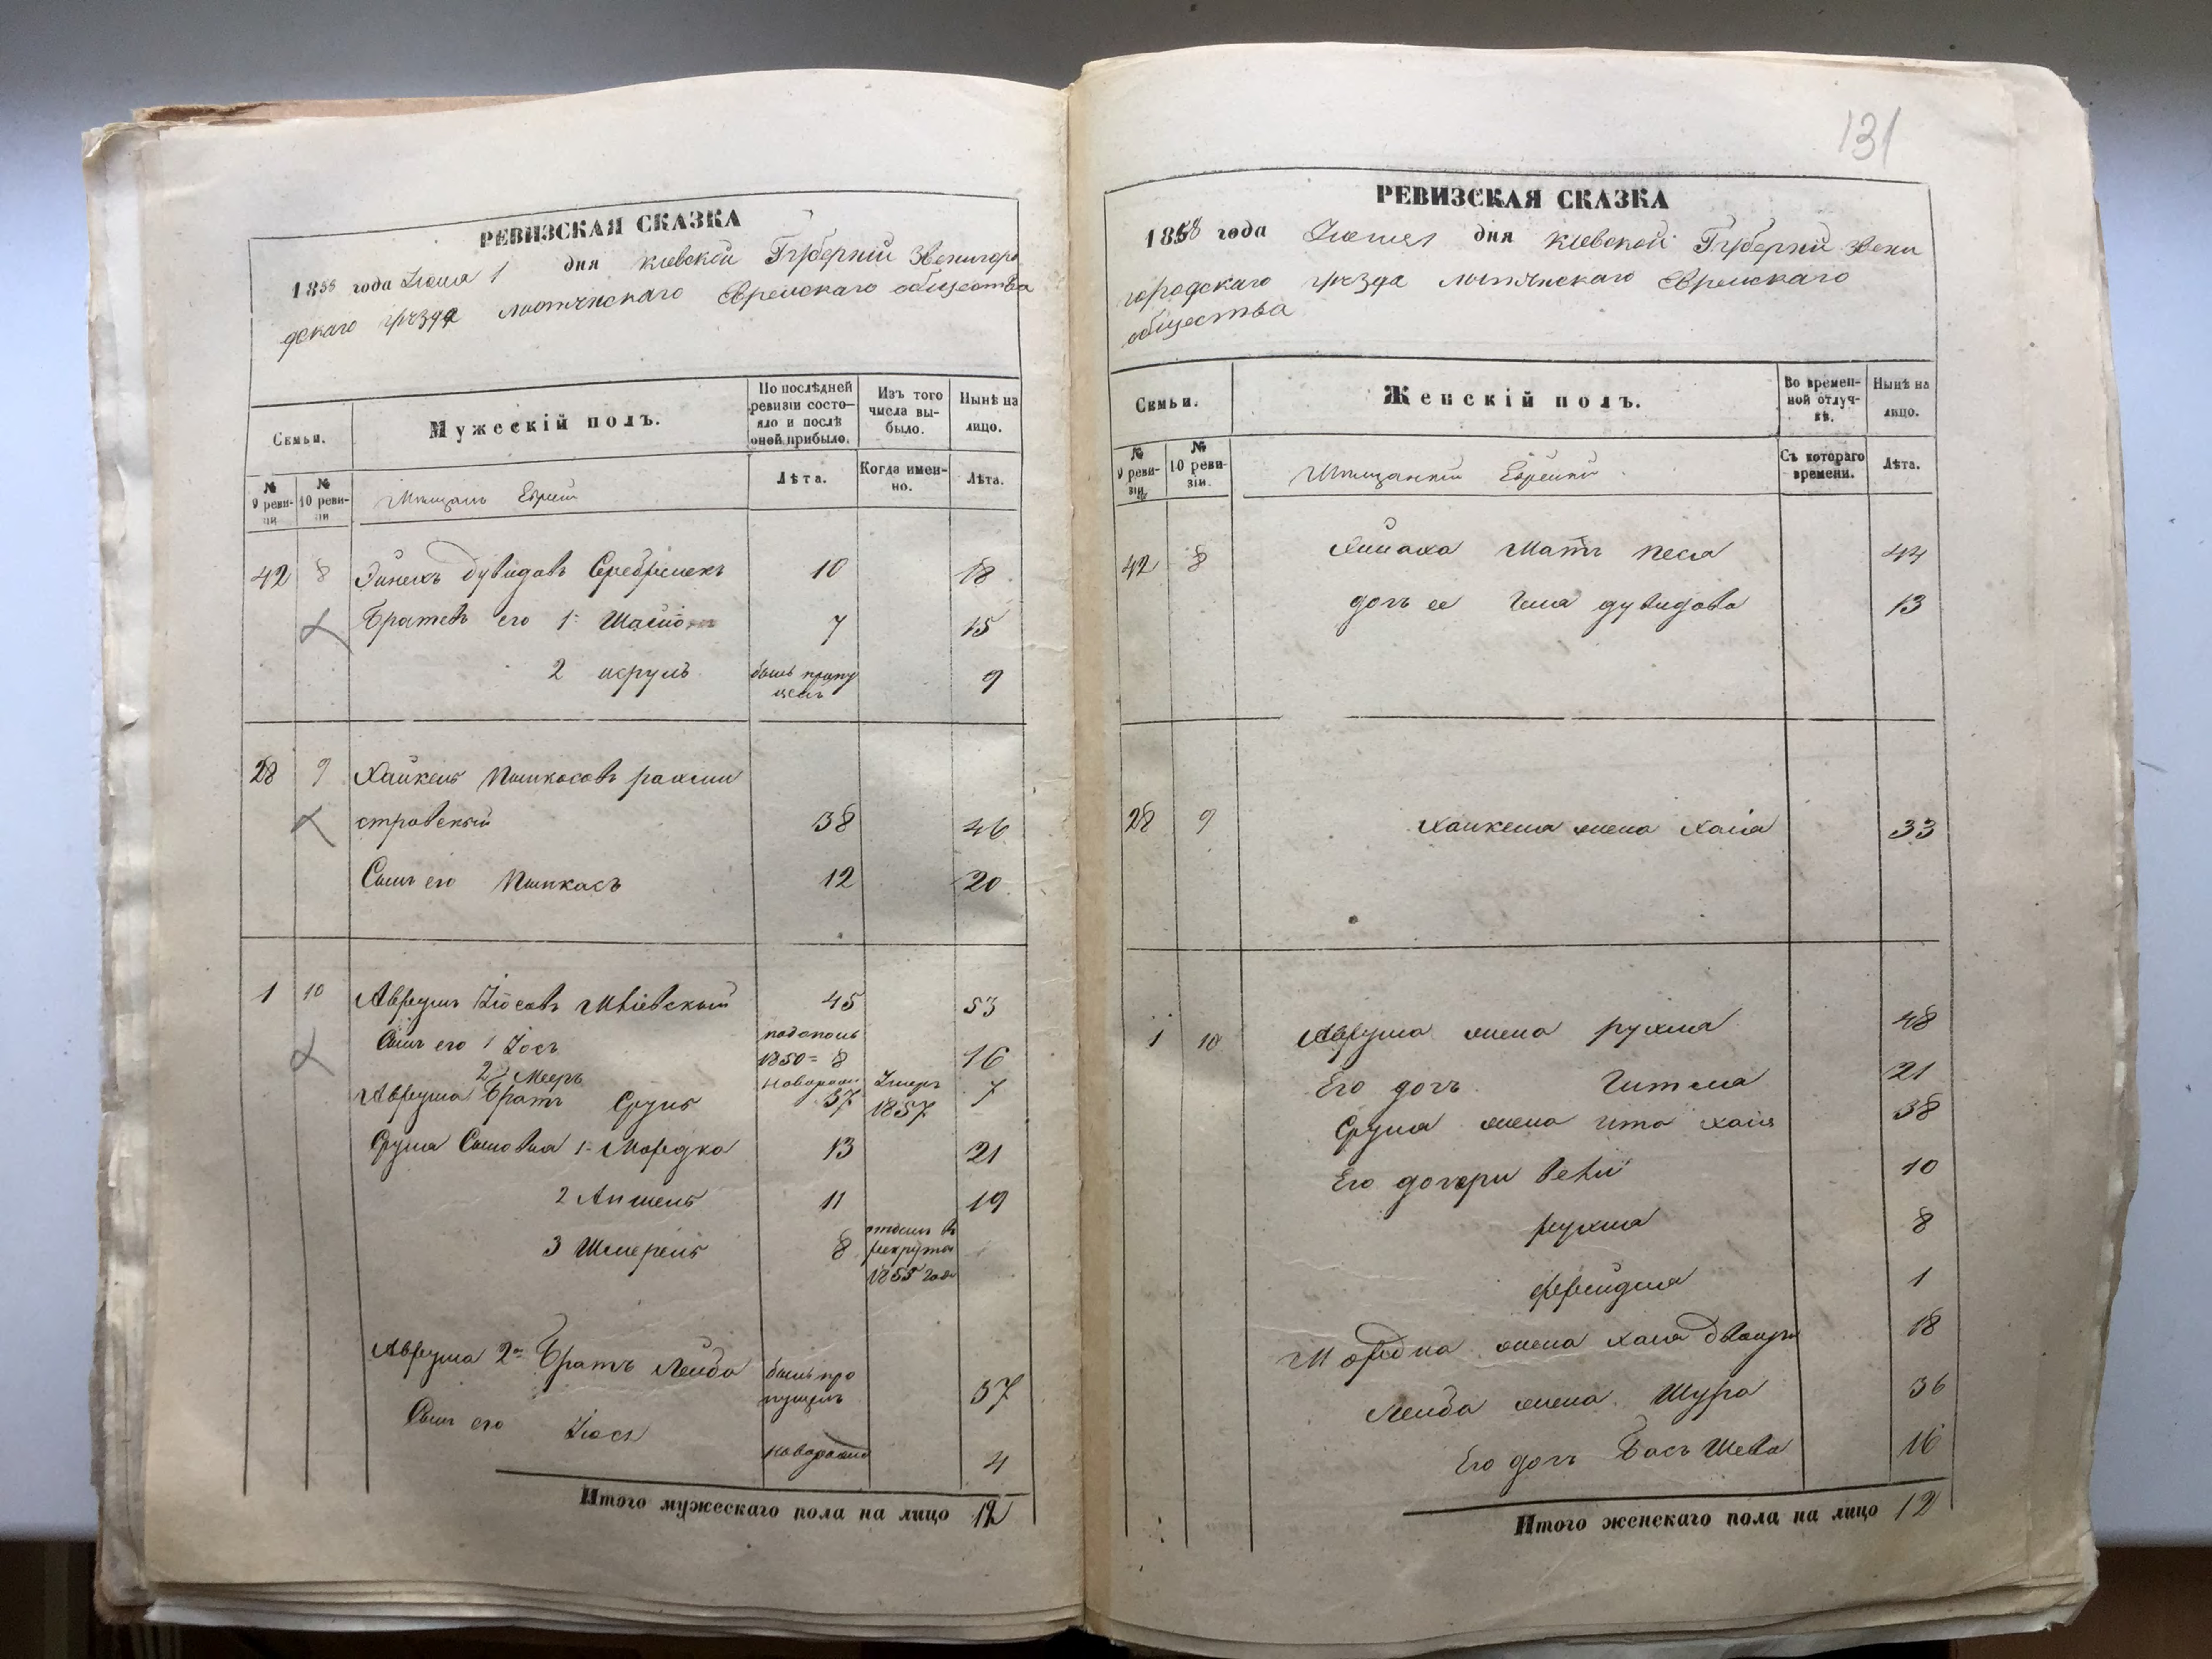 РЕВИЗСКАЯ СКАЗКА
1858 года Июня 1 дня Кіевской Губерніи Звенигоро
дскаго уѣзда Лысянскаго Еврейскаго общества
Семьи.
Мужескій полъ.
По послѣдней ревизіи состояло и послѣ оной прибыло.
Изъ того числа выбыло.
Нынѣ на лицо.
№ 9 ревизіи
№ 10 ревизіи
Мѣщане Евреи
Лѣта.
Когда именно.
Лѣта.
42 8 Дувидовъ 10 18
Братья его 1 7 15
2 Исруль былъ пропущенъ 9
28 9 Хайкель Пинкасовъ Рахми
стровскій 38 46
Сынъ его Пинкасъ 12 20
1 10 Аврумъ Іосевъ Мліевскій 45 53
Сынъ его 1 Іось 1850 = 8 16
2) Мееръ новорожд 7
Аврума Братъ Сруль 37 Умеръ 1857
Сруля Сыновья 1 Мордко 13 21
2 Аншель 11 19
3 Шмерель 8 отданъ въ рекруты 1855 года
Аврума 2й Братъ Лейба былъ пропущенъ 37
Сынъ его Іось новорожд 4
Итого мужескаго пола на лицо 12
131
РЕВИЗСКАЯ СКАЗКА
1858 года Июня 1 дня Кіевской Губерніи Звени
городскаго уѣзда Лысянскаго Еврейскаго
общества
Семьи.
Женскій полъ.
Во временной отлучкѣ.
Нынѣ на лицо.
№ 9 ревизіи.
№ 10 ревизіи.
Мѣщанки Еврейки
Съ котораго времени.
Лѣта.
42 8 Мать Песя 44
дочь ее Дувидова 13
28 9 Хайкеля жена Хая 33
1 10 Аврума жена Рухля 48
Его дочь Гитля 21
Сруля жена Ита Хая 38
Его дочери 10
Рухля 8
Фрейдля 1
Мордка жена Хана Двойра 18
Лейба жена Шура 36
Его дочь Бась Шева 16
Итого женскаго пола на лицо 12